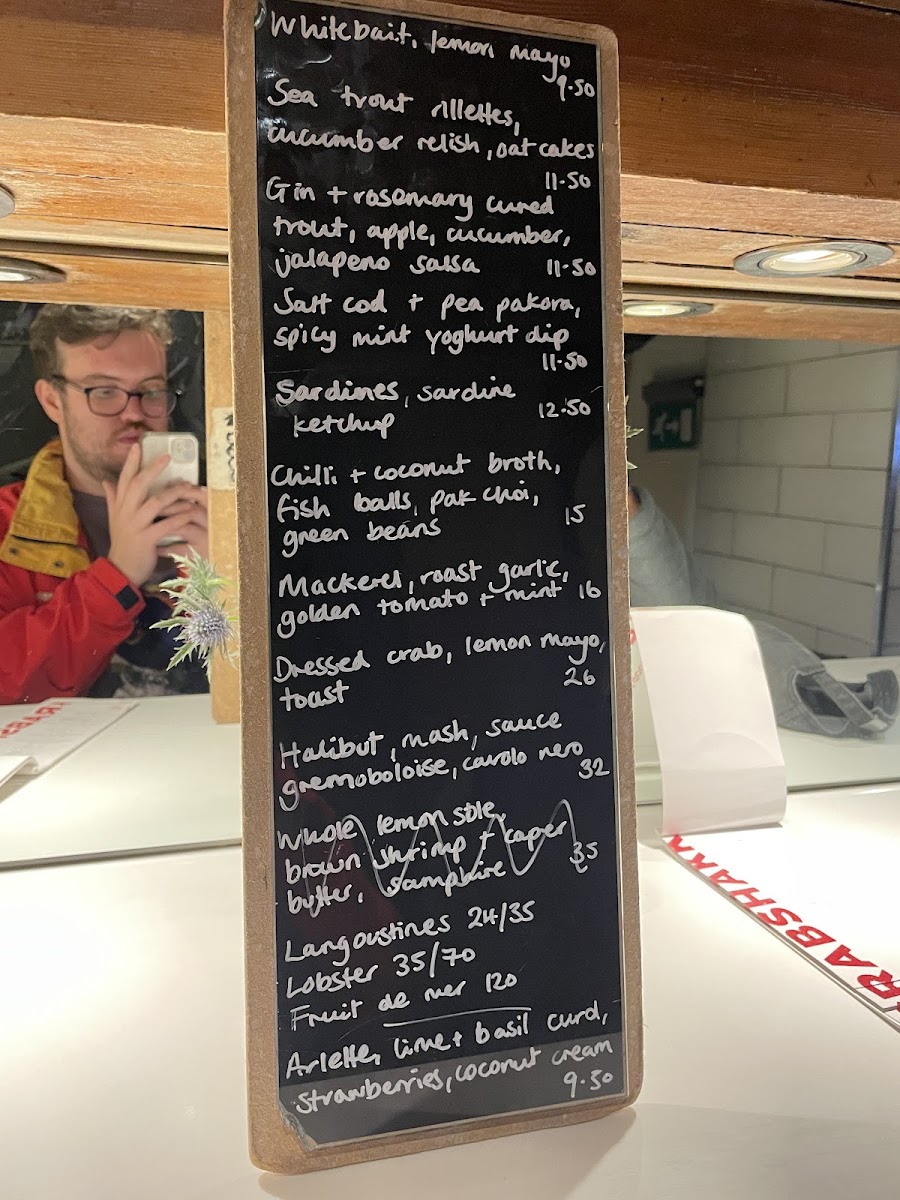 Whitebait, lemon mayo
9.50
Sea trout rillettes,
cucumber relish, oatcakes
11.50
Gin + rosemary cured
trout, apple, cucumber,
jalapeno salsa 11.50
Salt cod + pea pakora,
spicy mint yoghurt dip
11.50
Sardines, sardine
ketchup 12.50
Chilli + coconut broth,
fish balls, pak choi,
green beans 15
Mackerel, roast garlic,
golden tomato + mint 16
Dressed crab, lemon mayo,
toast 26
Halibut, mash, sauce
gremoboloise, cavolo nero
32
Whole lemon sole
brown shrimp + caper
butter, samphire 35
Langoustines 24/35
Lobster 35/70
Fruit de mer 120
Arlette, lime + basil curd,
strawberries, coconut cream
9.50
RABSHAKK